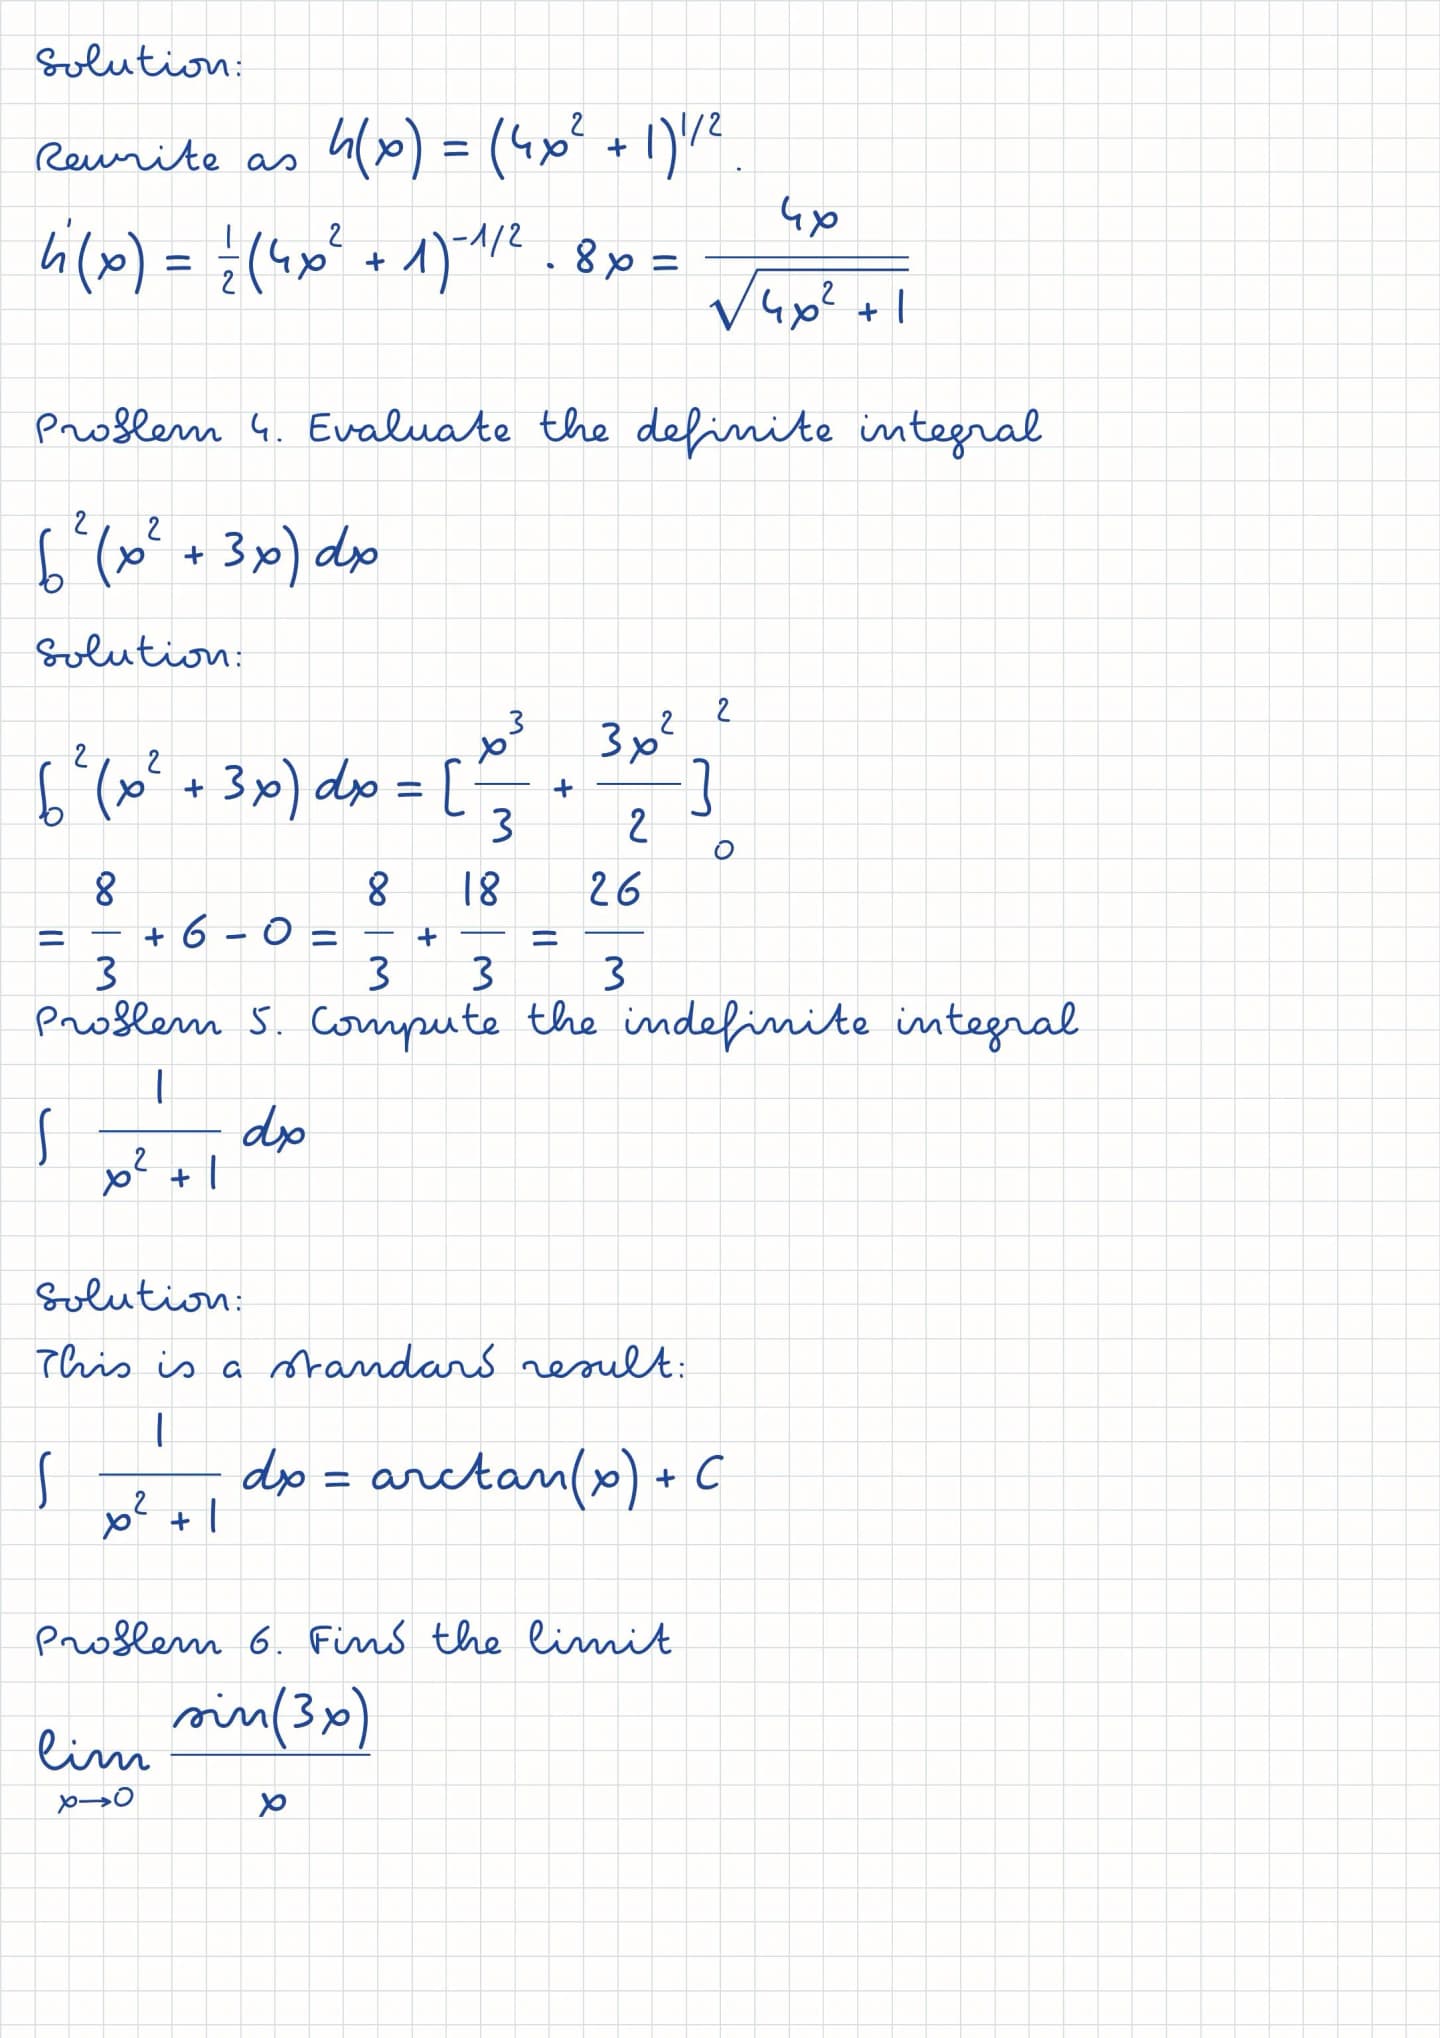 Solution:
Rewrite as h(x) = (4x² + 1)^1/2.
h'(x) = 1/2(4x² + 1)^-1/2 · 8x = 4x/√(4x² + 1)
Problem 4. Evaluate the definite integral
∫₀²(x² + 3x) dx
Solution:
∫₀²(x² + 3x) dx = [x³/3 + 3x²/2]₀²
= 8/3 + 6 - 0 = 8/3 + 18/3 = 26/3
Problem 5. Compute the indefinite integral
∫ 1/(x² + 1) dx
Solution:
This is a standard result:
∫ 1/(x² + 1) dx = arctan(x) + C
Problem 6. Find the limit
lim x→0 sin(3x)/x